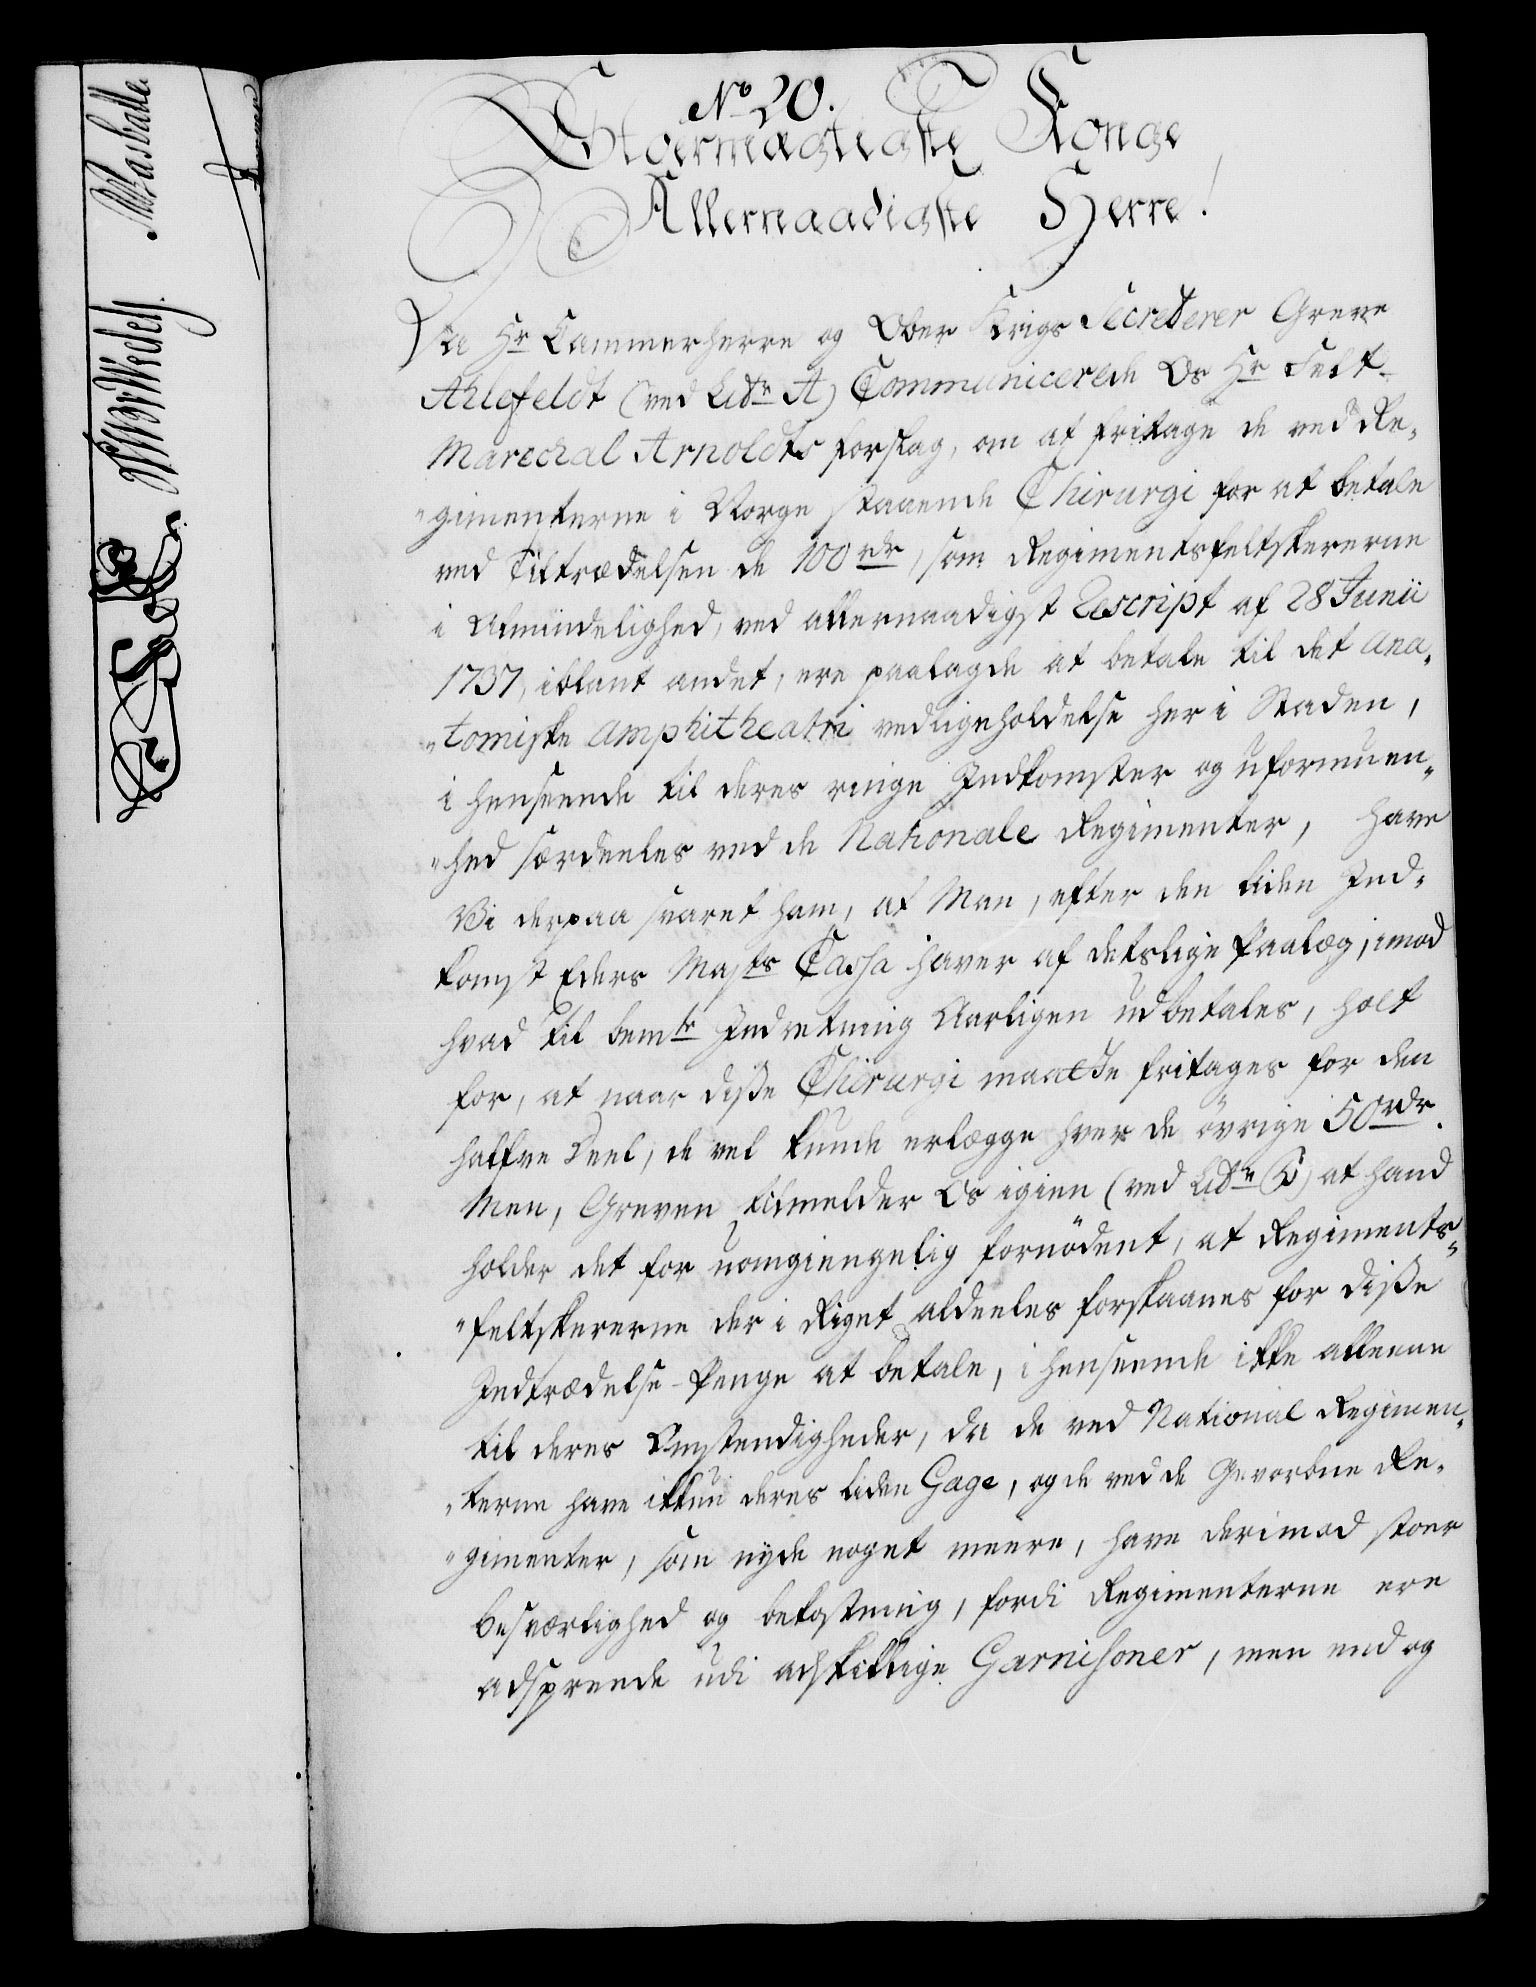 No 20.
Stoermægtigste Konge
Allernaadigste Herre!
Da Hr Cammerherre og Ober Krigs Secreterer Greve
Ahlefeldt (ved Litr A) Communicerede Os Hr Felt-
Marechal Arnoldts forslag, om at fritage de ved Re-
"gimenterne i Norge staaende Chirurgi for at betale
ved Tiltrædelsen de 100 rdr, som Regimentsfeltskererne
i Almindelighed, ved allernaadigst Rescript af 28 Junii
1737, iblant andet, ere paalagde at betale til det ana-
"tomiske amphitheatri vedligeholdelse her i Staden,
i henseende til deres ringe Indkomster og uformuen-
"hed særdeeles ved de Nationale Regimenter, have
Vi derpaa svaret ham, at Man, efter den liden Ind-
komst Eders Majts Cassa haver af detslige Paalæg, imod
hvad til bemte Indretning Aarligen udbetales, holt
for, at naar disse Chirurgi maatte fritages for den
halfve Deel, de vel kunde erlægge hver de övrige 50 rdr.
Men, Greven tilmelder Os igien (ved Litr B) at hand
holder det for uomgiengelig fornödent, at Regiments-
"feltskererne der i Riget aldeeles forskaanes for disse
Indtrædelse-Penge at betale, i henseende ikke alleene
til deres Omstendigheder, da de ved National Regimen-
"terne have ikkun deres liden Gage, og de ved de Gevorbne Re-
"gimenter, som nyde noget meere, have derimod stoer
besværlighed og bekostning, fordi Regimenterne ere
adspreede udi adskillige Garnisoner, men end og